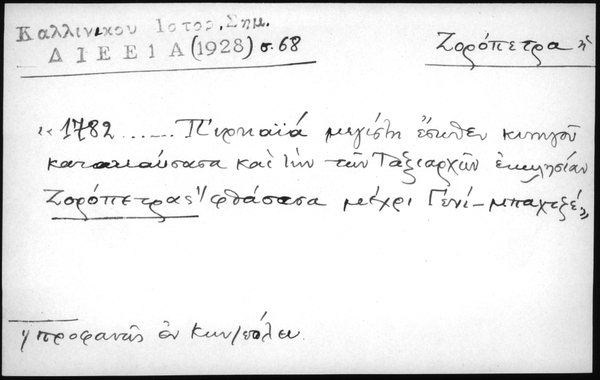 Καλλινικου Ιστορ. Σημ.
ΔΙΕΕ1Α (1928) σ. 68
Ζορόπετρα ἡ
«1782 ...... Πυρκαϊά μεγίστη ἔσωθεν κυνηγοῦ
κατακαύσασα καὶ τὴν τῶν Ταξιαρχῶν ἐκκλησίαν
Ζορόπετρας ἡ φθάσασα μέχρι Γενί-μπαχτσέ»
προφανῶς ἐν Κων/πόλει